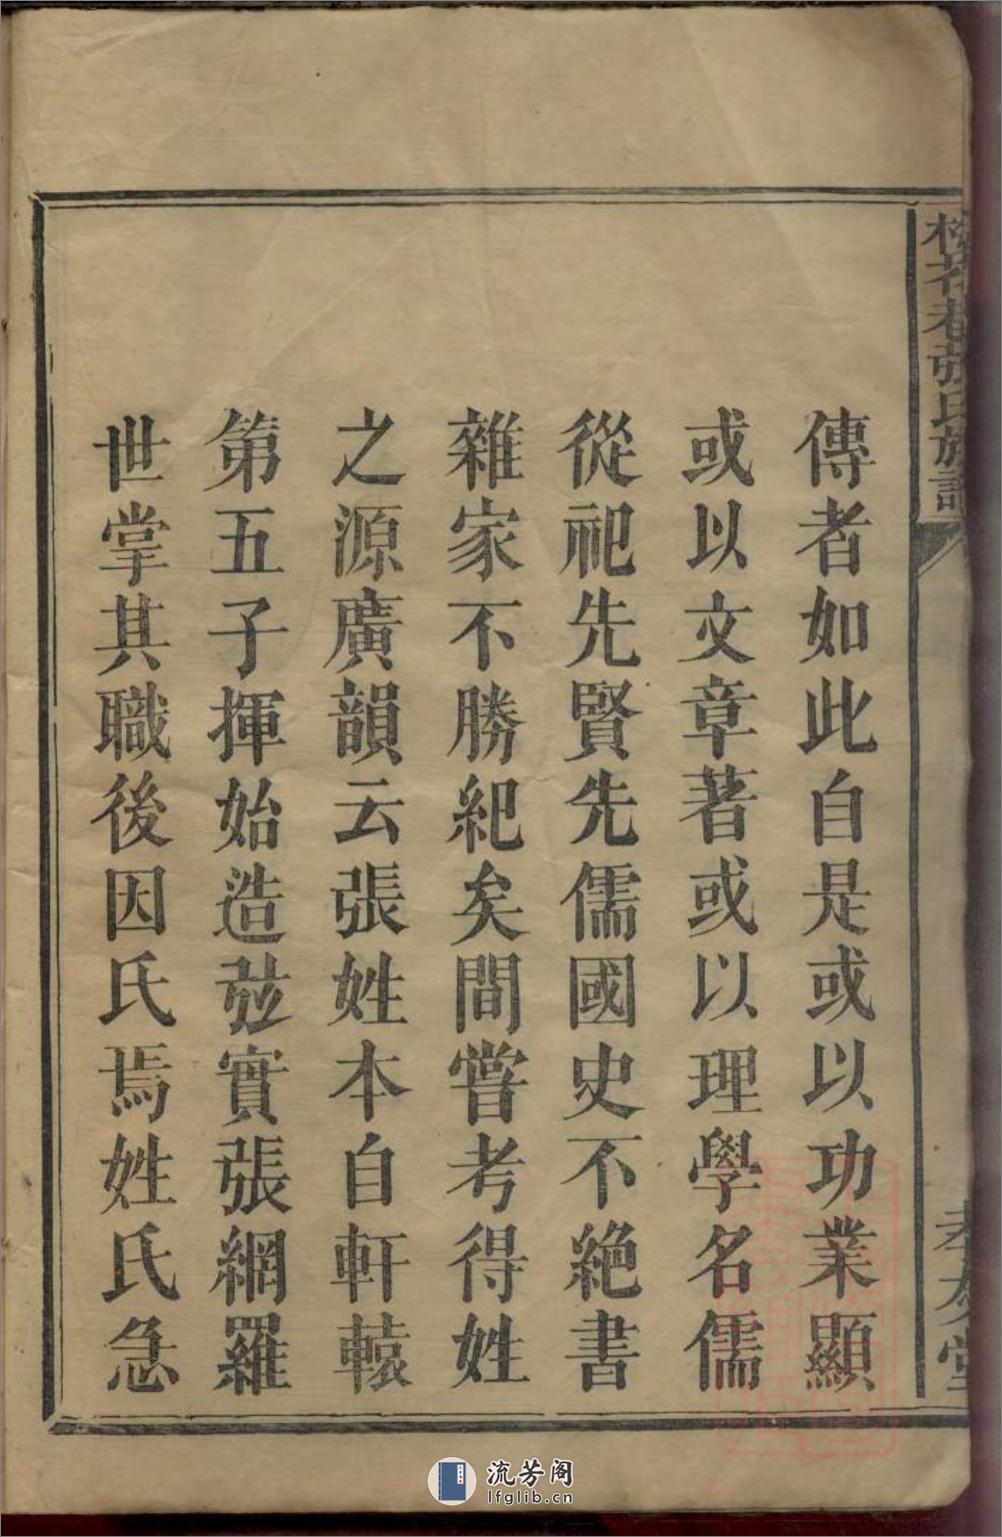 張氏族譜
傳者如此自是或以功業顯
或以文章著或以理學名儒
從祀先賢先儒國史不絶書
雜家不勝紀矣間嘗考得姓
之源廣韻云張姓本自軒轅
第五子揮始造弦實張網羅
世掌其職後因氏焉姓氏急
孝友堂
流芳阁
lfglib.cn